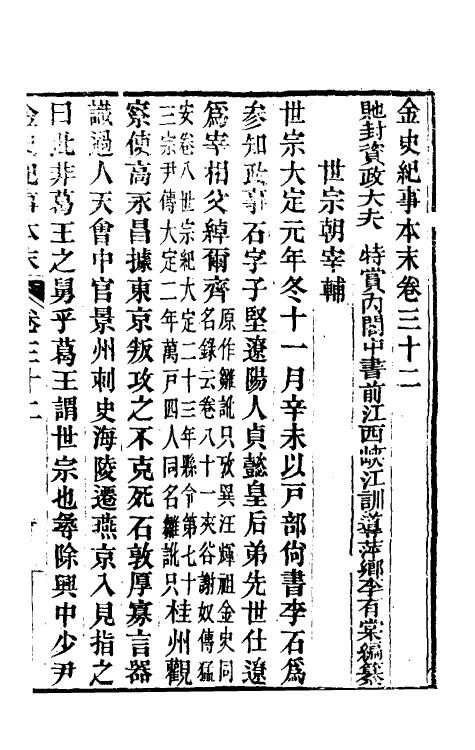 金史紀事本末卷三十二
貤封資政大夫 特賞內閣中書前江西峽江訓導萍鄉李有棠編纂
世宗朝宰輔
世宗大定元年冬十一月辛未以戸部尙書李石爲
參知政事石字子堅遼陽人貞懿皇后弟先世仕遼
爲宰相父綽爾齊原作雛訛只攷異汪輝祖金史同名錄云卷八十一夾谷謝奴傳猛
安卷八世宗紀大定二十三年縣令第七十三宗尹傳大定二年萬戸四人同名雛訛只桂州觀
察使高永昌據東京叛攻之不克死石敦厚寡言器
識過人天會中官景州刺史海陵遷燕京入見指之
曰此非葛王之舅乎葛王謂世宗也尋除興中少尹
金史紀事本末 卷三十二